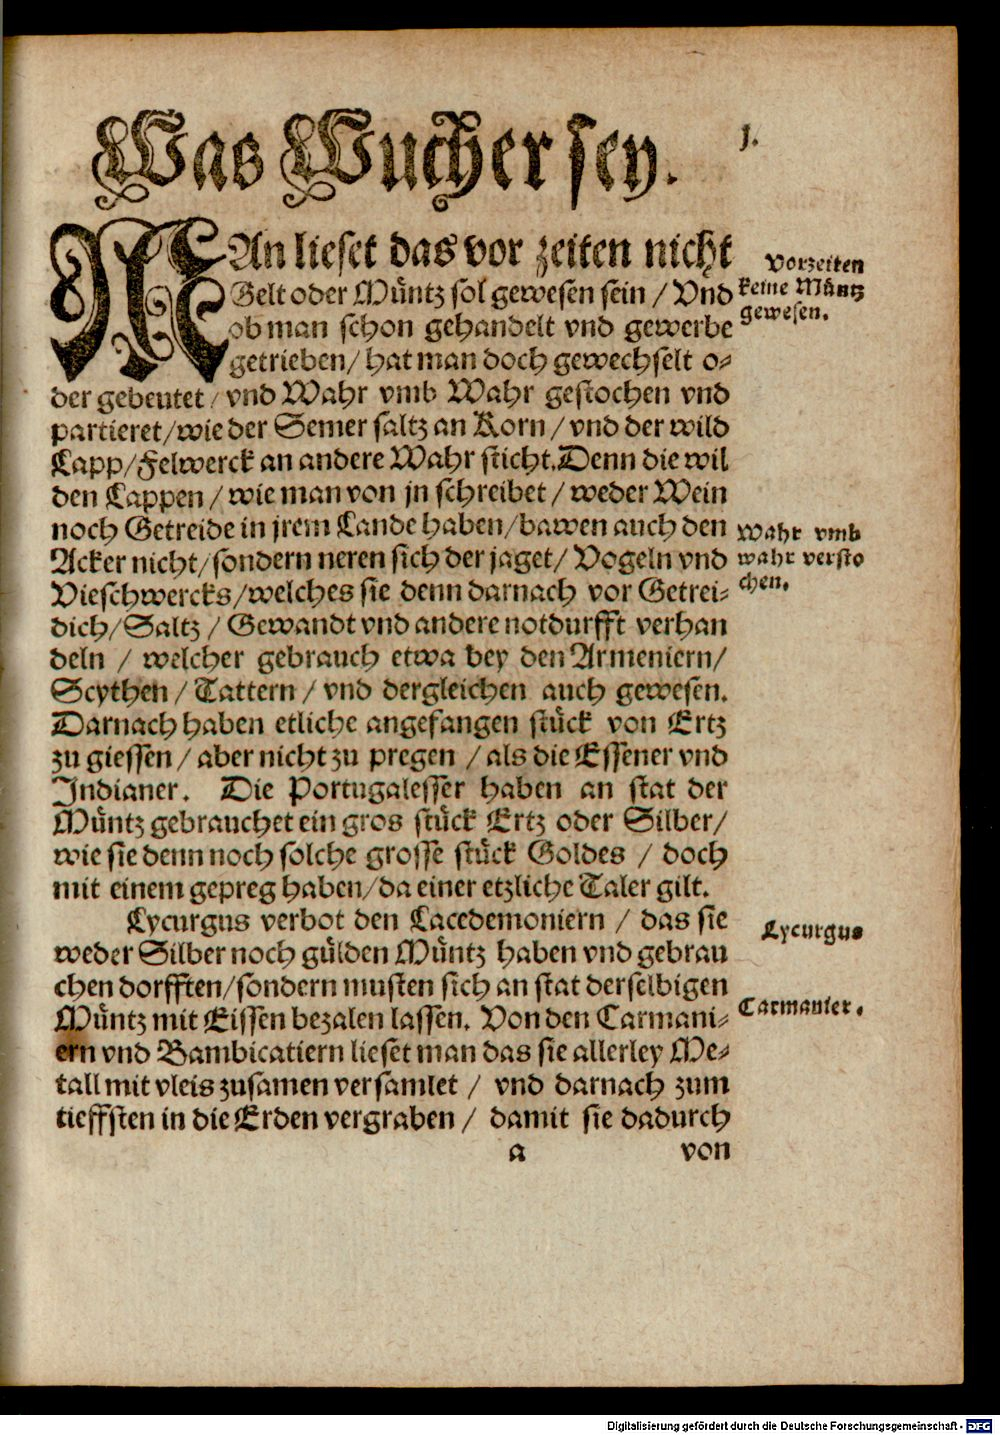 1.
Was Wucher sey.
MAn lieset das vor zeiten nicht
Gelt oder Müntz sol gewesen sein / Vnd
ob man schon gehandelt vnd gewerbe
getrieben / hat man doch gewechselt o-
der gebeutet / vnd Wahr vmb Wahr gestochen vnd
partieret / wie der Semer saltz an Korn / vnd der wild
Lapp / Felwerck an andere Wahr sticht. Denn die wil
den Lappen / wie man von jn schreibet / weder Wein
noch Getreide in jrem Lande haben / bawen auch den
Acker nicht / sondern neren sich der jaget / Vogeln vnd
Vieschwercks / welches sie denn darnach vor Getrei-
dich / Saltz / Gewandt vnd andere notdurfft verhan
deln / welcher gebrauch etwa bey den Armeniern /
Scythen / Tattern / vnd dergleichen auch gewesen.
Darnach haben etliche angefangen stück von Ertz
zu giessen / aber nicht zu pregen / als die Essener vnd
Indianer. Die Portugalesser haben an stat der
Müntz gebrauchet ein gros stück Ertz oder Silber /
wie sie denn noch solche grosse stück Goldes / doch
mit einem gepreg haben / da einer etzliche Taler gilt.
Lycurgus verbot den Lacedemoniern / das sie
weder Silber noch gülden Müntz haben vnd gebrau
chen dorfften / sondern musten sich an stat derselbigen
Müntz mit Eissen bezalen lassen. Von den Carmani-
ern vnd Bambicatiern lieset man das sie allerley Me-
tall mit vleis zusamen versamlet / vnd darnach zum
tieffsten in die Erden vergraben / damit sie dadurch
a von
Vorzeiten
keine Müntz
gewesen.
Wahr vmb
wahr versto
chen.
Lycurgus
Carmanier.
Digitalisierung gefördert durch die Deutsche Forschungsgemeinschaft - DFG